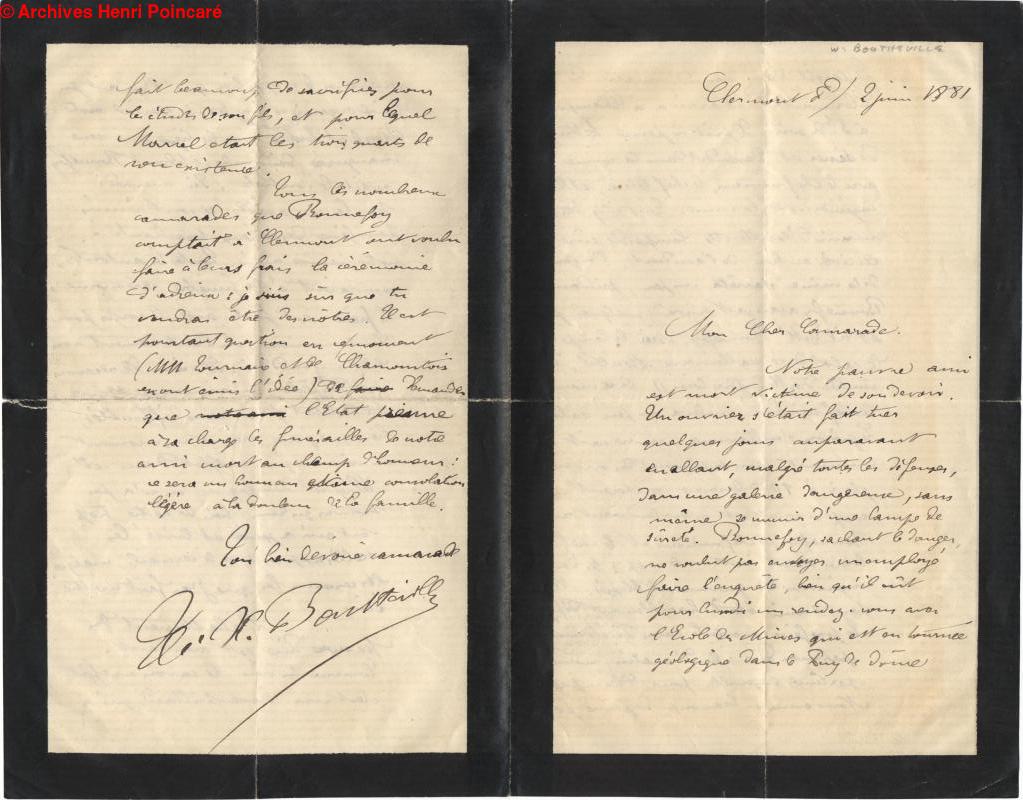 © Archives Henri Poincaré
W. BOUTHEVILLE
Clermont Fd / 2 juin 1881
Mon Cher Camarade.
Notre pauvre ami
est mort victime de son devoir.
Un ouvrier s'était fait tuer
quelques jours auparavant
en allant, malgré toutes les défenses,
dans une galerie dangereuse, sans
même se munir d'une lampe de
sûreté. Bonnefoy, sachant le danger,
ne voulut pas envoyer un employé
faire l'enquête, bien qu'il eût
pour lundi un rendez-vous avec
l'Ecole des Mines qui est en tournée
géologique dans le Puy de dôme
fait beaucoup de sacrifices pour
les études de son fils, et pour lequel
Marcel était les trois quarts de
son existence.
Tous les nombreux
camarades que Bonnefoy
comptait à Clermont ont voulu
faire à leurs frais la cérémonie
d'adieux : je suis sûr que tu
voudras être des nôtres. Il est
pourtant question en ce moment
(MM Tournaire et de Chamourtois
en ont émis l'idée) de faire demander
que notre ami l'Etat prenne
à sa charge les funérailles de notre
ami mort au champ d'honneur :
ce sera un honneur et une consolation
légère à la douleur de la famille.
Ton bien dévoué camarade